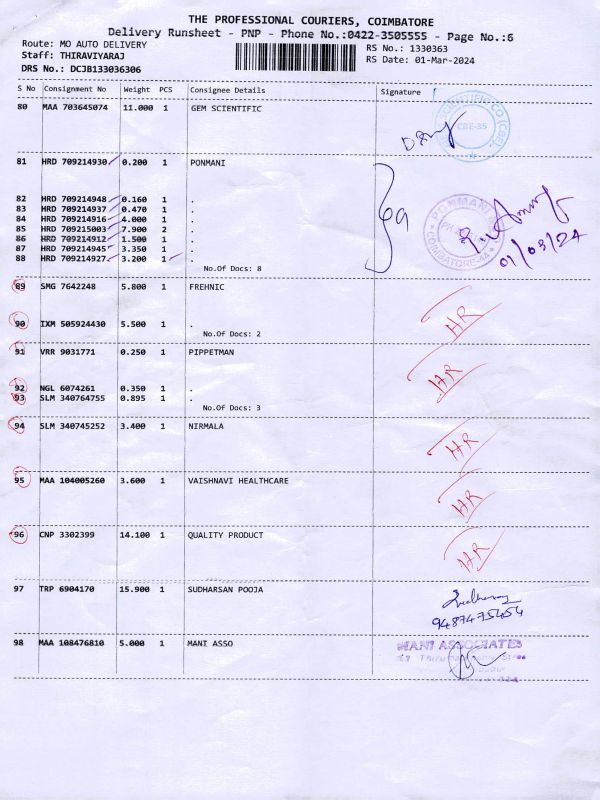 THE PROFESSIONAL COURIERS, COIMBATORE
Delivery Runsheet - PNP - Phone No.:0422-3505555 - Page No.:6
Route: MO AUTO DELIVERY RS No.: 1330363
Staff: THIRAVIYARAJ RS Date: 01-Mar-2024
DRS No.: DCJB133036306
S No Consignment No Weight PCS Consignee Details Signature
80 MAA 703645074 11.000 1 GEM SCIENTIFIC
CBE-35
81 HRD 709214930 0.200 1 PONMANI
82 HRD 709214948 0.160 1 .
83 HRD 709214937 0.470 1 .
84 HRD 709214916 4.000 1 .
85 HRD 709215003 7.900 2 .
86 HRD 709214912 1.500 1 .
87 HRD 709214945 3.350 1 .
88 HRD 709214927 3.200 1 .
No.Of Docs: 8
PONMANI
COIMBATORE-44
01/03/24
89 SMG 7642248 5.800 1 FREHNIC
HR
90 IXM 505924430 5.500 1 .
No.Of Docs: 2
91 VRR 9031771 0.250 1 PIPPETMAN
HR
92 NGL 6074261 0.350 1 .
93 SLM 340764755 0.895 1 .
No.Of Docs: 3
94 SLM 340745252 3.400 1 NIRMALA
HR
95 MAA 104005260 3.600 1 VAISHNAVI HEALTHCARE
HR
96 CNP 3302399 14.100 1 QUALITY PRODUCT
HR
97 TRP 6904170 15.900 1 SUDHARSAN POOJA
9487475454
98 MAA 108476810 5.000 1 MANI ASSO
MANI ASSOCIATES